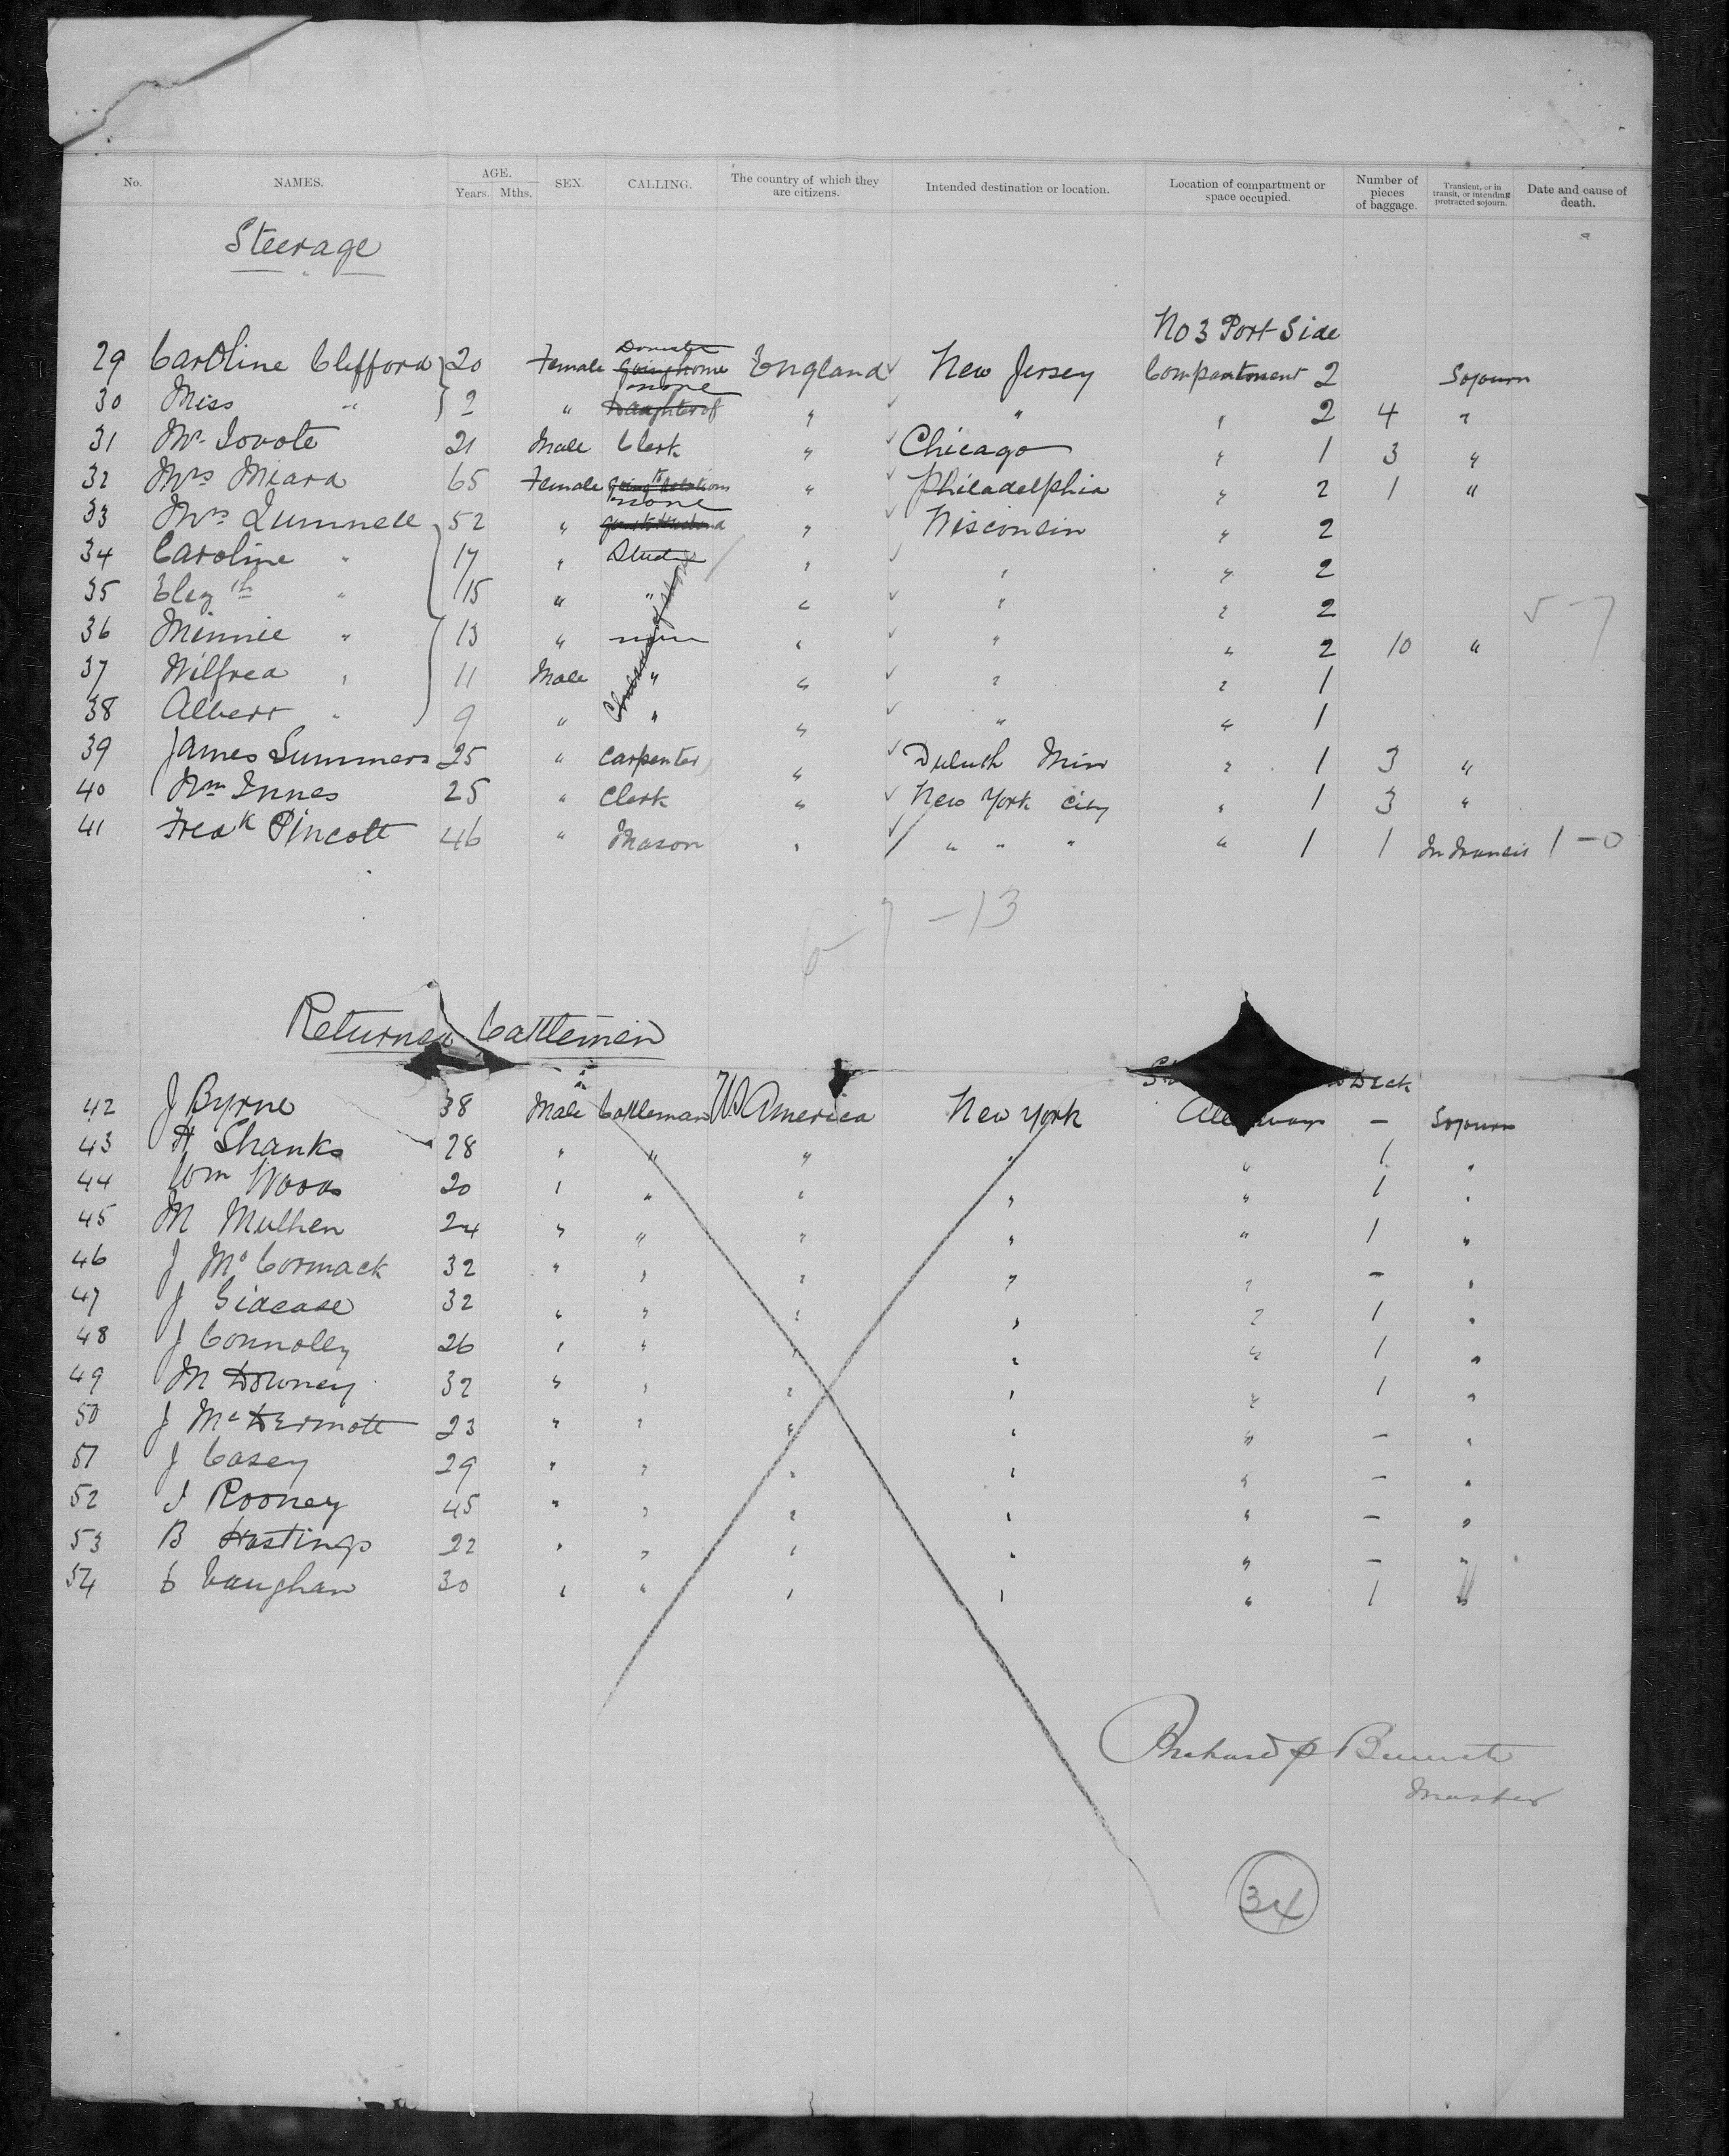 No. NAMES. AGE. Years. Mths. SEX. CALLING. The country of which they are citizens. Intended destination or location. Location of compartment or space occupied. Number of pieces of baggage. Transient, or in transit, or intending protracted sojourn. Date and cause of death.
Steerage
No 3 Port Side
29 Caroline Clifford 20 Female Domestic England New Jersey Compartment 2 Sojourn
30 Miss " 2 " none Daughter of " " " 2 4 "
31 Mr. Tovote 21 Male Clerk " Chicago " 1 3 "
32 Mrs Meara 65 Female going to relations " Philadelphia " 2 1 "
33 Mrs 52 " none " Wisconsin " 2
34 Caroline " 17 " " " " 2
35 Elizth " 15 " " " " " 2
36 Minnie " 13 " none " " " 2 10 " 5-7
37 Wilfred " 11 Male " " " " 1
38 Albert " 9 " " " " " 1
39 James Summers 25 " Carpenter " Duluth Min " 1 3 "
40 Wm Innes 25 " Clerk " New York City " 1 3 "
41 Fredk Pincott 46 " Mason " " " " " 1 1 In Transit 1-0
6-7-13
Returned Cattlemen
Deck
42 J Byrne 38 Male Cattleman US America New York - Sojourn
43 H Shanks 28 " " " " " 1 "
44 Wm Woods 20 " " " " " 1 "
45 M Mulhen 24 " " " " " 1 "
46 J McCormack 32 " " " " " - "
47 J 32 " " " " " 1 "
48 J Connolly 26 " " " " " 1 "
49 M Downey 32 " " " " " 1 "
50 J McDermott 23 " " " " " - "
51 J Casey 29 " " " " " - "
52 J Rooney 45 " " " " " - "
53 B Hastings 22 " " " " " - "
54 C Vaughan 30 " " " " " 1 "
Richard
Master
34